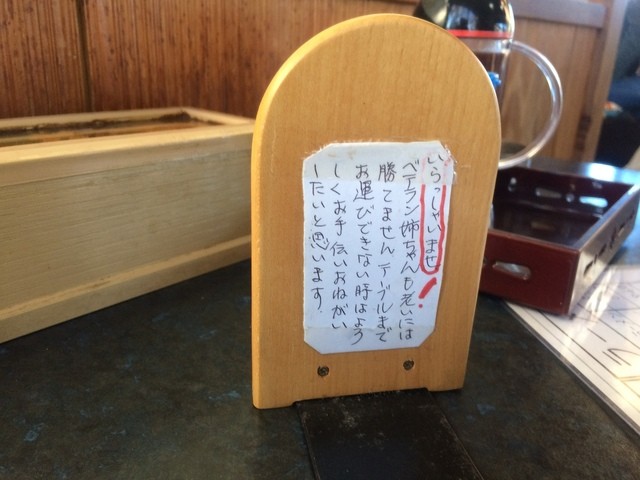 いらっしゃいませ!
ベテラン姉ちゃんも老いには
勝てませんテーブルまで
お運びできない時はよろ
しくお手伝いおねがい
したいと思います